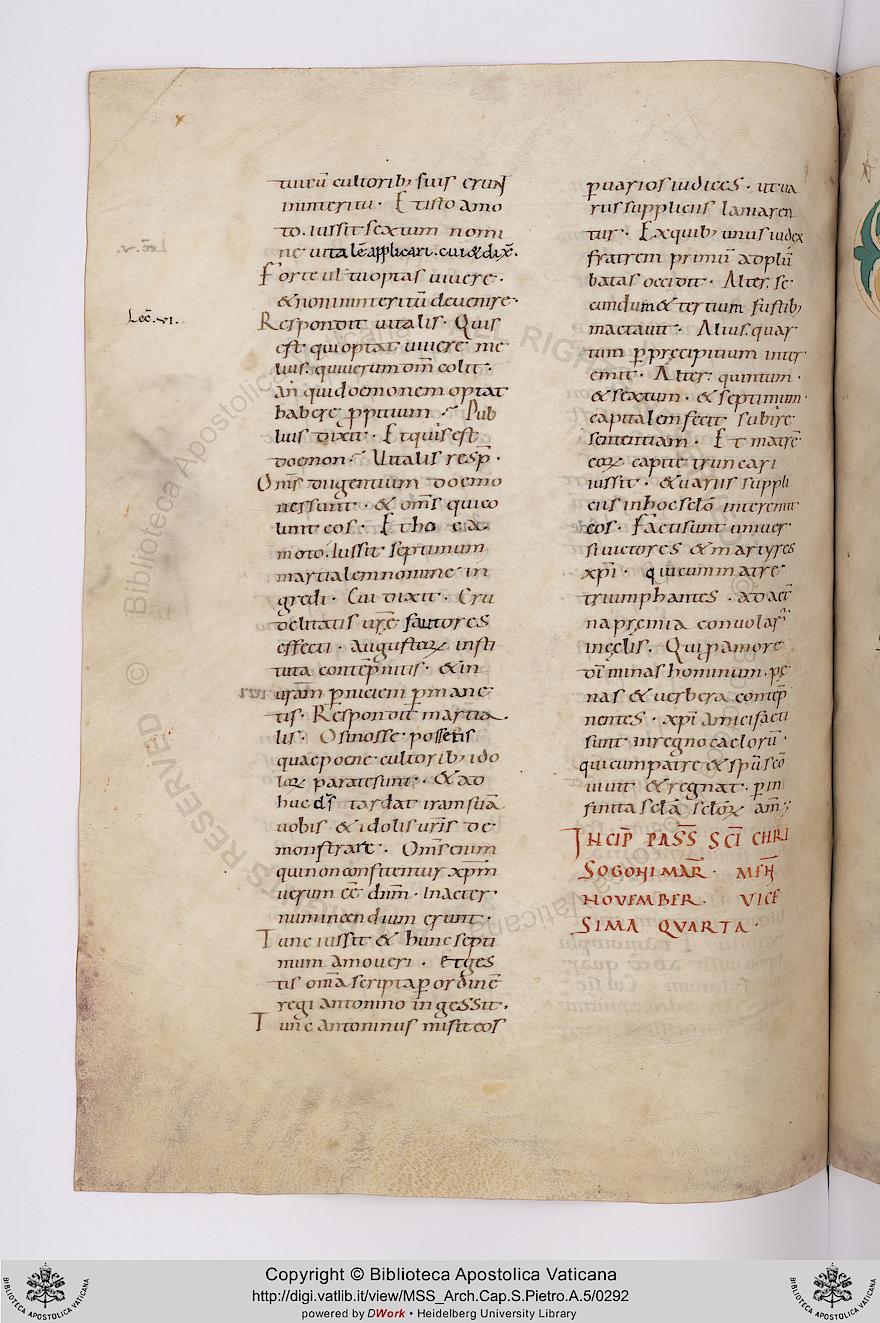 tui cū cultorib; suis erunt
in interitu. Et isto amo
to. iussit sextum nomi
ne uitalē applicari. cui & dix̄.
Forte uł tu optas uiuere.
& non in interitū deuenire.
Lec̄. vi.
Respondit uitalis. Quis
est qui optat uiuere me
lius. qui uerum dm̄ colit.
an qui demonem optat
habere ꝓpitium. Pub
lius dixit. Et quis est
doemon. Uitalis resp̄.
Oms̄ dii gentium doemo
nes sunt. & oms̄ qui co
lunt eos. Et hoc ea
moto. Iussit septimum
martialem nomine in
gredi. Cui dixit. Cru
delitatis urē fautores
effecti. augustoꝝ insti
tuta contēpnitis. & in
uram̄ ꝑniciem ꝑmane
tis. Respondit martia
lis. O si nosse possetis
quae poene cultorib; ido
loꝝ paratesunt. & ad
huc ds̄ tardat iram suā
uobis & idolis urīs de
monstrare. Oms̄ enim
qui non confitentur xp̄m
uerum eē dnm̄. In aeter
num incendium erunt.
Tunc iussit & hunc septi
mum amoueri. et ges
tis om̄a scripta ꝑ ordinē
regi antonino ingessit.
Tunc antoninus misit eos
ꝑ uarios iudices. ut ua
riis suppliciis laniaren
tur. Ex quib; unus iudex
fratrem primū ad plū
batas occidit. Alter. se
cundum & tertium fustib;
mactauit. Alius. quar
tum ꝑ precipitium inter
emit. Alter. quintum.
& sextum. & septimum.
capitalem fecit subire
sententiam. Et matrē
eoꝝ capite truncari
iussit. & uariis suppli
ciis in hoc sclō interemit
eos. Facti sunt uniuer
si uictores & martyres
xp̄i. qui cum matre
triumphantes. ad aet̄
na premia conuolaꝛ̄
in celis. Qui ꝑ amore
dī minas hominum. pe
nas & uerbera contēp
nentes. xp̄i amici facti
sunt in regno caelorū.
qui cum patre & spū scō
uiuit & regnat. ꝑ in
finita sclā scloꝝ am̄;
INCIP̄ PASS̄ SC̄I CHRI
SOGONI MAR̄. MEN̄
NOVEMBER. VICE
SIMA QVARTA.
Copyright © Biblioteca Apostolica Vaticana
http://digi.vatlib.it/view/MSS_Arch.Cap.S.Pietro.A.5/0292
powered by DWork • Heidelberg University Library